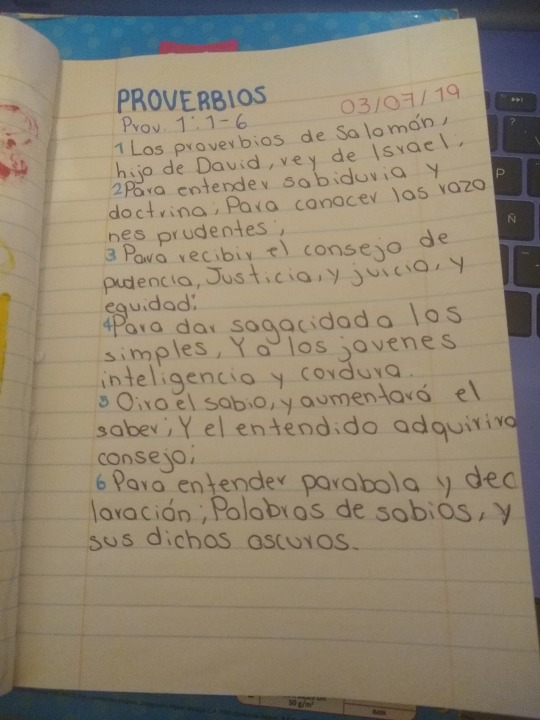 PROVERBIOS
03/07/19
Prov. 1:1-6
1 Los proverbios de Salomón,
hijo de David, rey de Israel.
2 Para entender sabiduria y
doctrina; Para conocer las razo
nes prudentes;
3 Para recibir el consejo de
pudencia, Justicia, y juicio, y
equidad;
4 Para dar sagacidad a los
simples, Y a los jovenes
inteligencia y cordura.
5 Oira el sabio, y aumentará el
saber; Y el entendido adquirira
consejo;
6 Para entender parabola y dec
laración; Palabras de sabios, y
sus dichos oscuros.
P
Ñ
?
50 g/m²